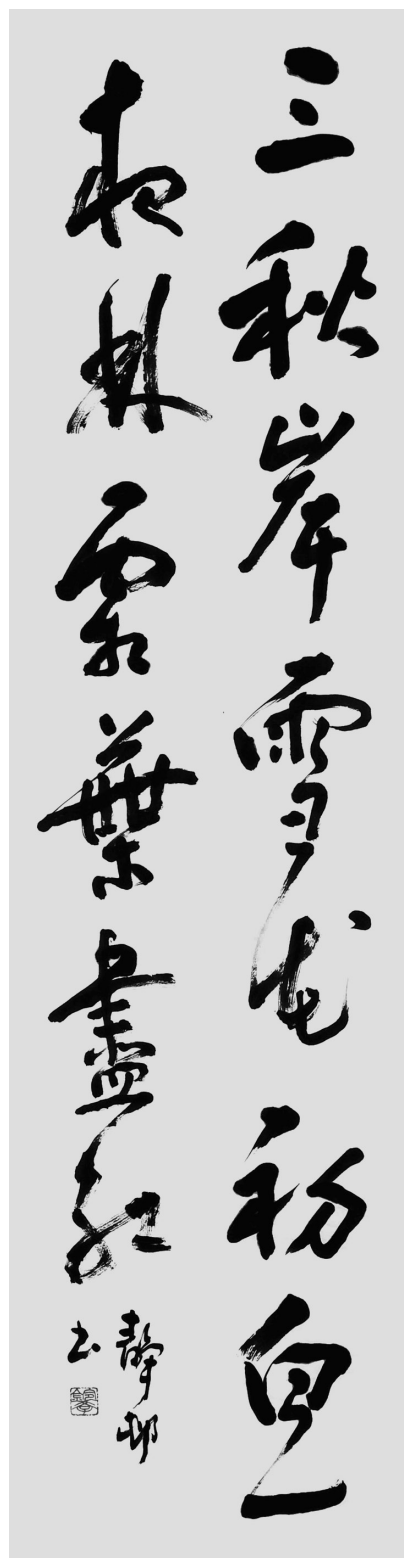 三秋岸雪花初白一
夜林霜葉盡紅
靜邨
書